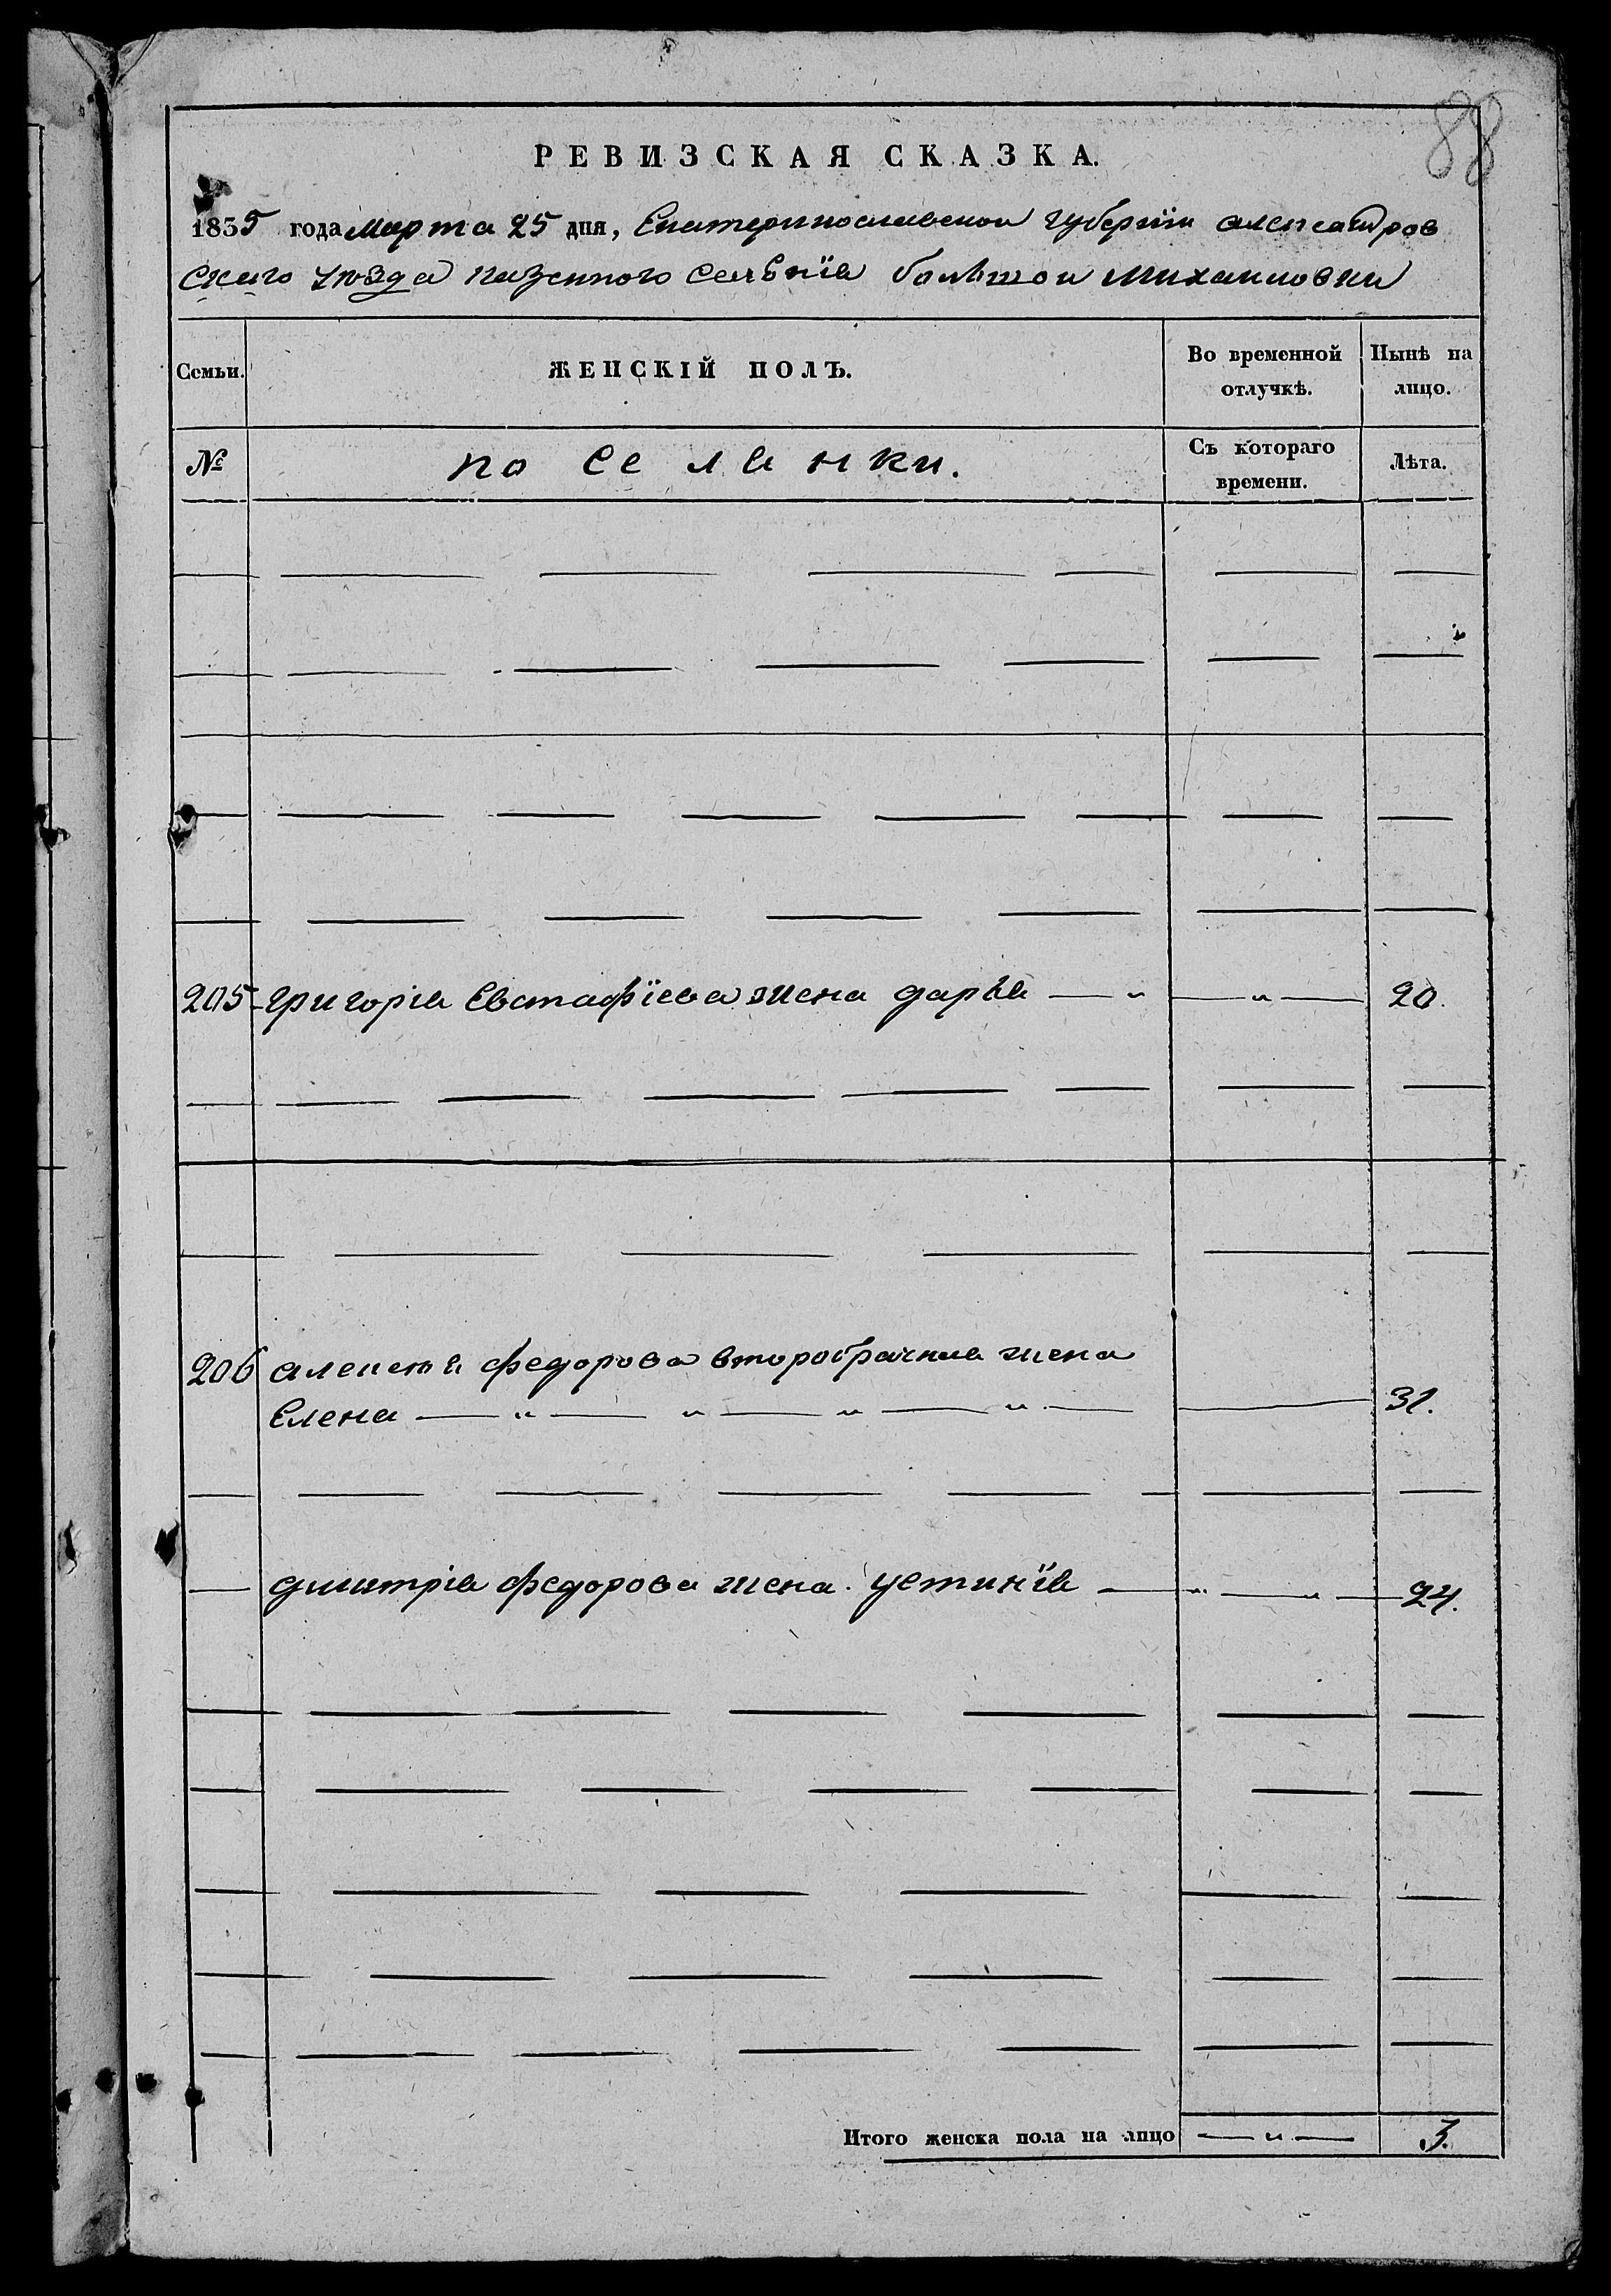 88
РЕВИЗСКАЯ СКАЗКА.
1835 года марта 25 дня, Екатеринославской губернии александров
скаго уѣзда казенного селѣнїя большой михайловки
Семьи. ЖЕНСКІЙ ПОЛЪ. Во временной отлучкѣ. Нынѣ на лицо.
№ поселянки. Съ котораго времени. Лѣта.
205 григорія Евстафїева жена дарья — „ — „ — 20.
206 алексѣя федорова второбрачная жена
Елена — „ — „ — „ — „ — 31.
— дмитрія федорова жена устинїя — „ — „ — 24.
Итого женска пола на лицо — „ — 3.